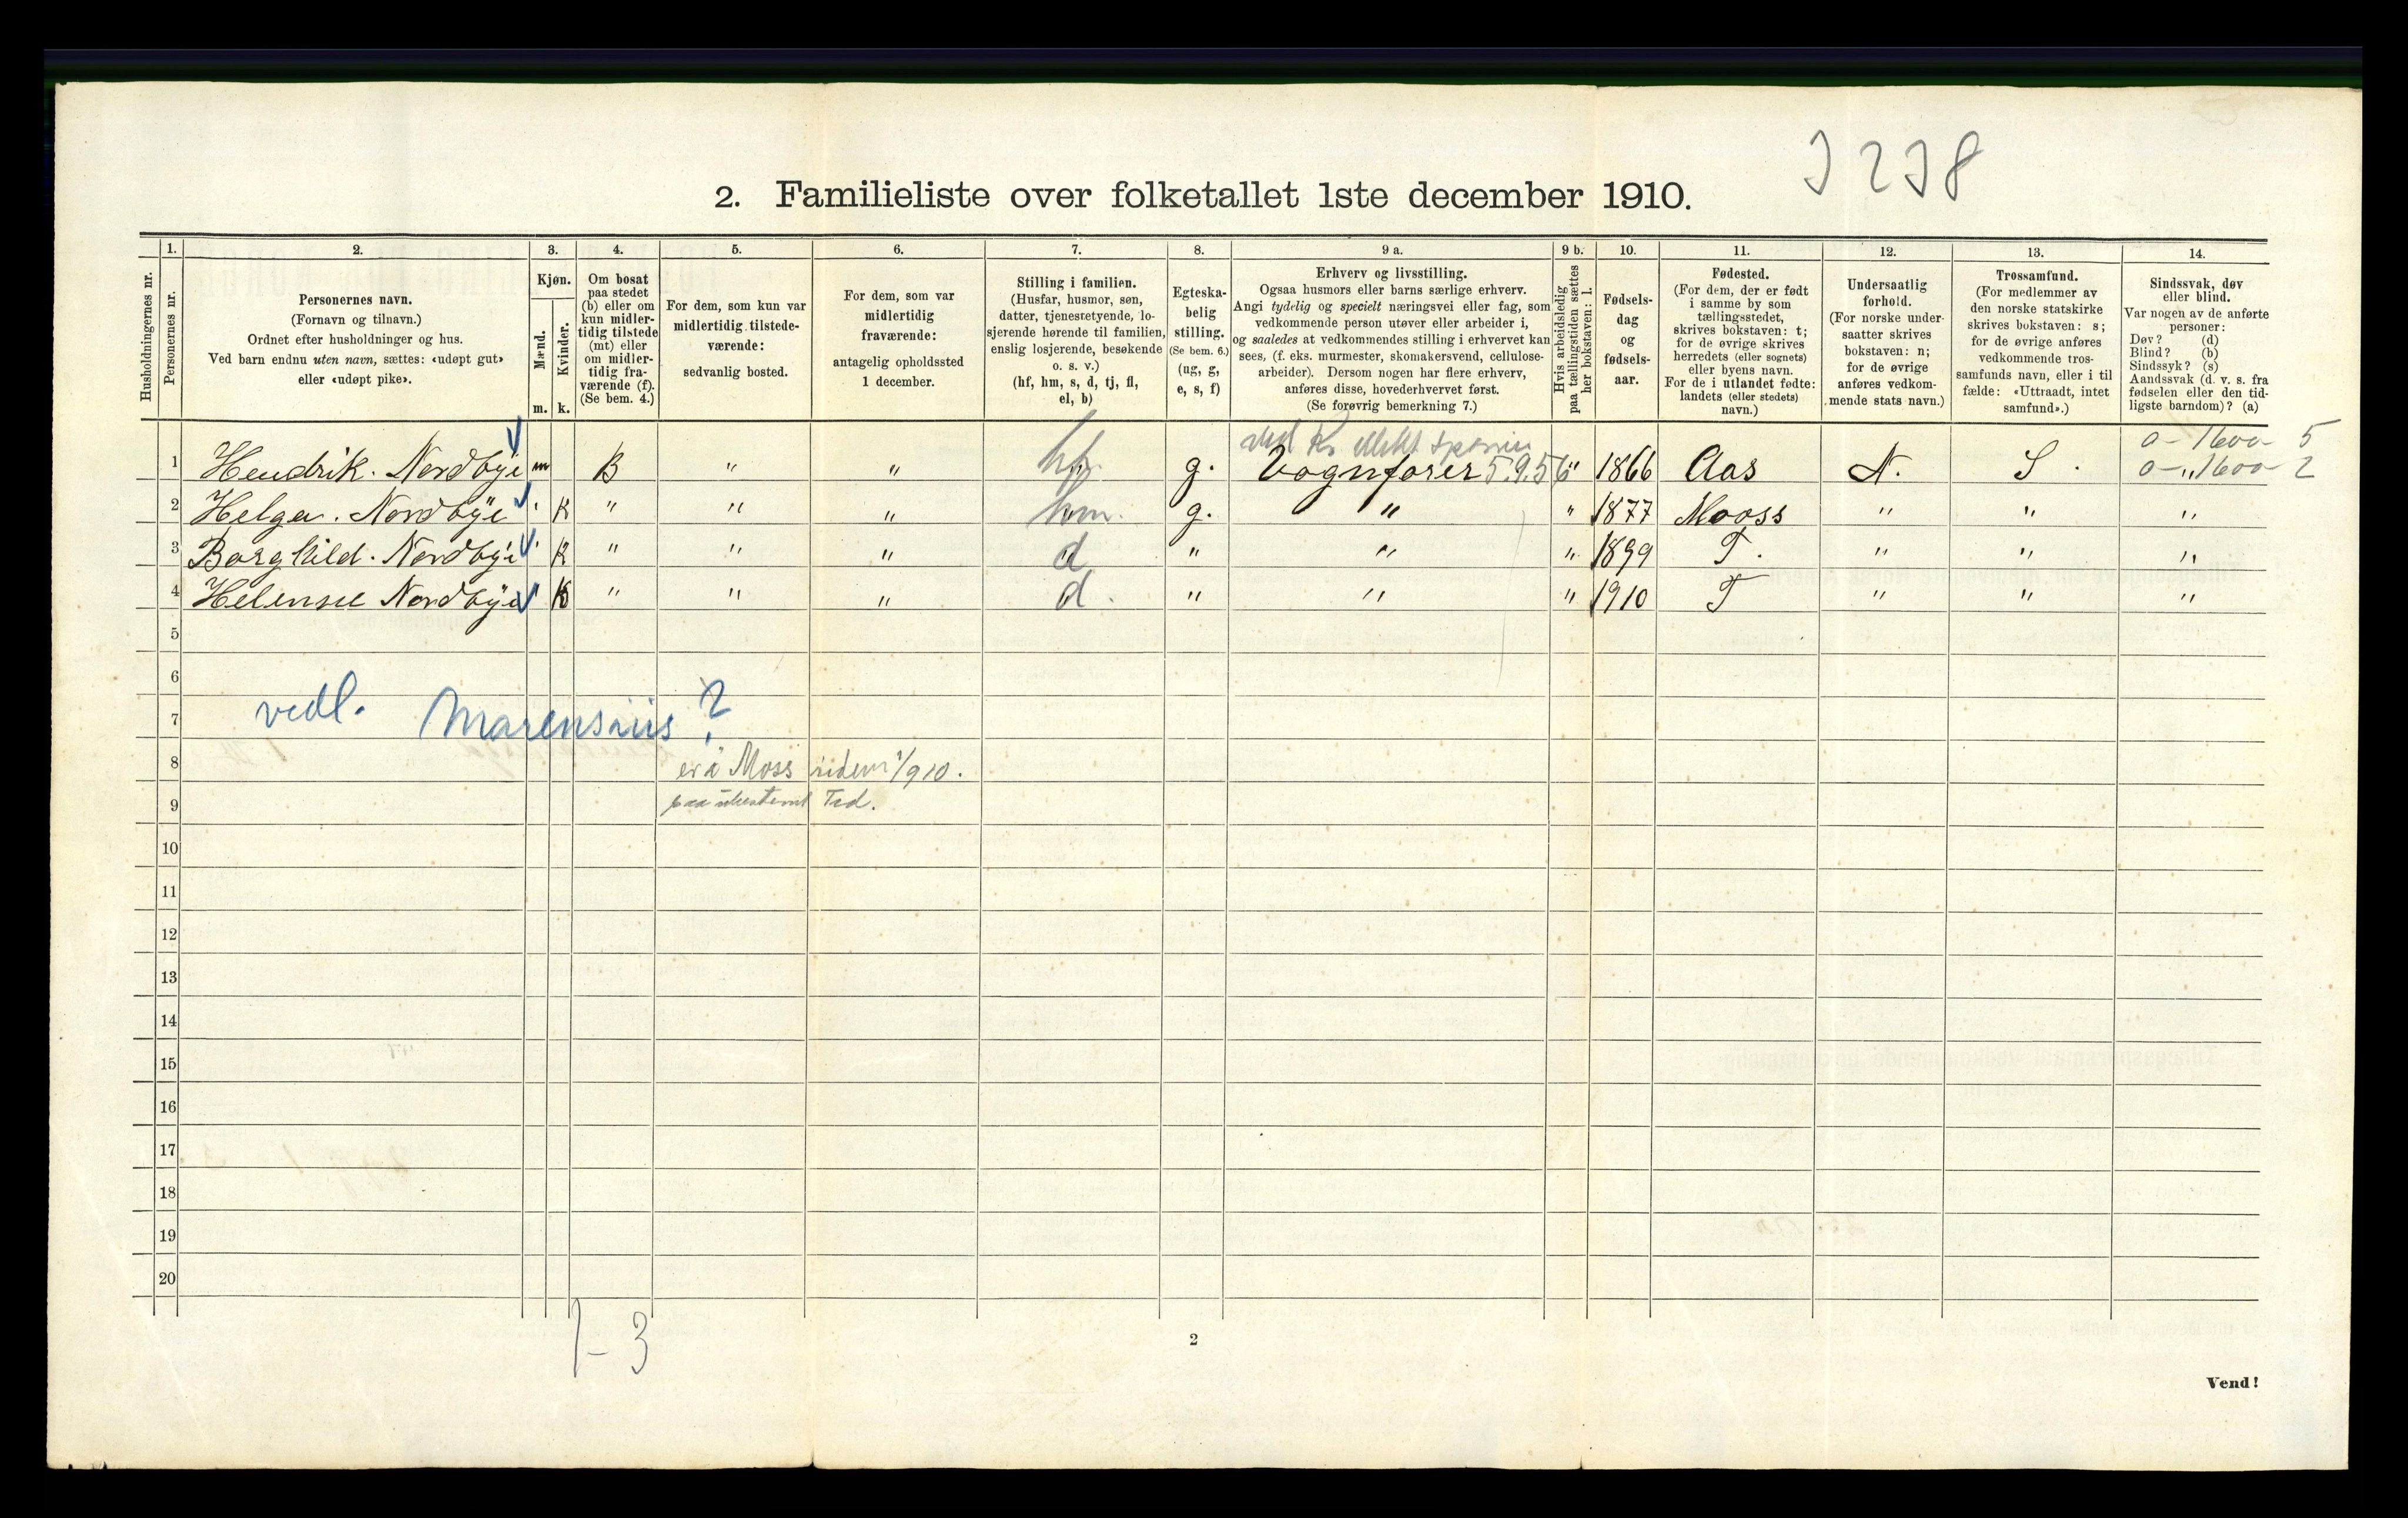 3238
2. Familieliste over folketallet 1ste december 1910.
Husholdningernes nr.
1.
Personernes nr.
2.
Personernes navn.
(Fornavn og tilnavn.)
Ordnet efter husholdninger og hus.
Ved barn endnu uten navn, sættes: «udøpt gut»
eller «udøpt pike».
3.
Kjøn.
Mænd.
Kvinder.
m. k.
4.
Om bosat
paa stedet
(b) eller om
kun midler-
tidig tilstede
(mt) eller
om midler-
tidig fra-
værende (f).
(Se bem. 4.)
5.
For dem, som kun var
midlertidig tilstede-
værende:
sedvanlig bosted.
6.
For dem, som var
midlertidig
fraværende:
antagelig opholdssted
1 december.
7.
Stilling i familien.
(Husfar, husmor, søn,
datter, tjenestetyende, lo-
sjerende hørende til familien,
enslig losjerende, besøkende
o. s. v.)
(hf, hm, s, d, tj, fl,
el, b)
8.
Egteska-
belig
stilling.
(Se bem. 6.)
(ug, g,
e, s, f)
9 a.
Erhverv og livsstilling.
Ogsaa husmors eller barns særlige erhverv.
Angi tydelig og specielt næringsvei eller fag, som
vedkommende person utøver eller arbeider i,
og saaledes at vedkommendes stilling i erhvervet kan
sees, (f. eks. murmester, skomakersvend, cellulose-
arbeider). Dersom nogen har flere erhverv,
anføres disse, hovederhvervet først.
(Se forøvrig bemerkning 7.)
9 b.
Hvis arbeidsledig
paa tællingstiden sættes
her bokstaven: l.
10.
Fødsels-
dag
og
fødsels-
aar.
11.
Fødested.
(For dem, der er født
i samme by som
tællingsstedet,
skrives bokstaven: t;
for de øvrige skrives
herredets (eller sognets)
eller byens navn.
For de i utlandet fødte:
landets (eller stedets)
navn.)
12.
Undersaatlig
forhold.
(For norske under-
saatter skrives
bokstaven: n;
for de øvrige
anføres vedkom-
mende stats navn.)
13.
Trossamfund.
(For medlemmer av
den norske statskirke
skrives bokstaven: s;
for de øvrige anføres
vedkommende tros-
samfunds navn, eller i til
fælde: «Uttraadt, intet
samfund».)
14.
Sindssvak, døv
eller blind.
Var nogen av de anførte
personer:
Døv? (d)
Blind? (b)
Sindssyk? (s)
Aandssvak (d. v. s. fra
fødselen eller den tid-
ligste barndom)? (a)
ved Kr. elekt sporvei 0-1600- 5
1 Hendrik. Nordbÿe m B " " hf g. Vognfører 5.9.56 " 1866 Aas N. S. 0-"1600- 2
2 Helga. Nordbÿe " K " " " hm. g. " " 1877 Mooss " " "
3 Borghild. Nordbÿe " K " " " d " " " 1899 T. " " "
4 Helenne Nordbÿe " K " " " d. " " " 1910 T " " "
5
6
7 vedl. Marensiüs?
8 er i Moss siden 1/910.
9 paa ubestemt Tid.
10
11
12
13
14
15
16
17
18
19
20
1-3
2
Vend!